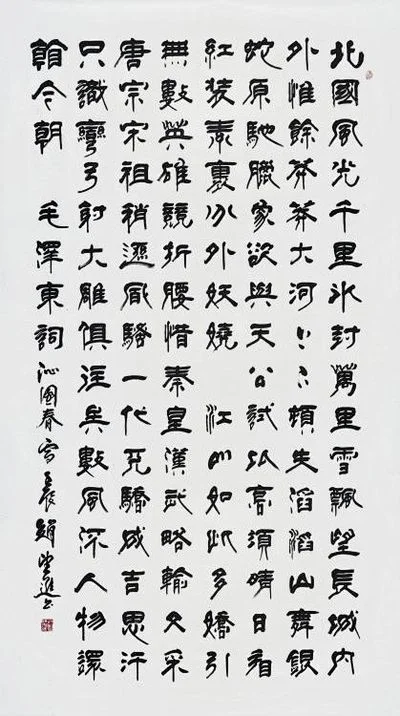 北國風光千里冰封萬里雪飄望長城内
外惟餘莽莽大河上下頓失滔滔山舞銀
蛇原馳臘象欲與天公試比高須晴日看
紅裝素裹分外妖嬈 江山如此多嬌引
無數英雄競折腰惜秦皇漢武略輸文采
唐宗宋祖稍遜風騷一代天驕成吉思汗
只識彎弓射大雕俱往矣數風流人物還
看今朝 毛澤東詞 沁園春雪 壬辰 趙望進書